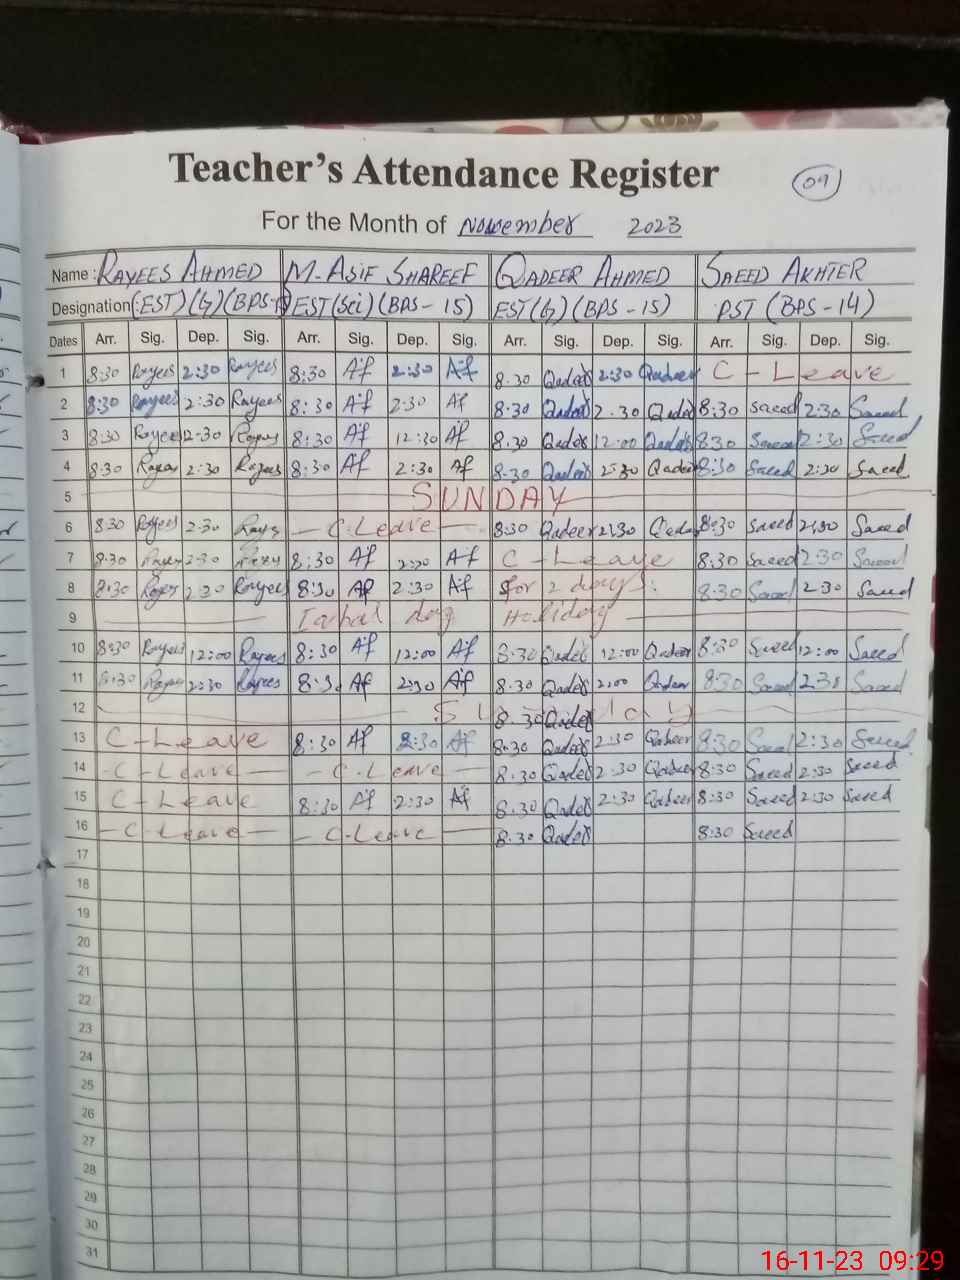 Teacher's Attendance Register
09
For the Month of November 2023
Name : RAYEES AHMED M-ASIF SHAREEF QADEER AHMED SAEED AKHTER
Designation : EST)(G)(BPS- EST(Sci)(BPS-15) EST(G)(BPS-15) PST(BPS-14)
Dates Arr. Sig. Dep. Sig. Arr. Sig. Dep. Sig. Arr. Sig. Dep. Sig. Arr. Sig. Dep. Sig.
1 8:30 Rayees 2:30 Rayees 8:30 Af 2:30 Af 8.30 Qadeer 2:30 Qadeer C-Leave
2 8:30 Rayees 2:30 Rayees 8:30 Af 2:30 Af 8.30 Qadeer 2.30 Qadeer 8:30 Saeed 2:30 Saeed
3 8:30 Rayees 2-30 Rayees 8:30 Af 12:30 Af 8.30 Qadeer 12:00 Qadeer 8:30 Saeed 2:30 Saeed
4 8:30 Rayees 2:30 Rayees 8:30 Af 2:30 Af 8.30 Qadeer 2:30 Qadeer 8:30 Saeed 2:30 Saeed
5 SUNDAY
6 8:30 Rayees 2:30 Rayees C-Leave 8:30 Qadeer 2:30 Qadeer 8:30 Saeed 2:30 Saeed
7 8:30 2:30 8:30 Af 2:30 Af C-Leave 8:30 Saeed 2:30 Saeed
8 8:30 Rayees 2:30 Rayees 8:30 Af 2:30 Af for 2 days. 8:30 Saeed 2:30 Saeed
9 Iqbal day Holiday
10 8:30 Rayees 12:00 Rayees 8:30 Af 12:00 Af 8.30 Qadeer 12:00 Qadeer 8:30 Saeed 12:00 Saeed
11 8:30 Rayees 2:30 Rayees 8:30 Af 2:30 Af 8.30 Qadeer 2:00 Qadeer 8:30 Saeed 2:30 Saeed
12 Sunday 8.30 Qadeer
13 C-Leave 8:30 Af 2:30 Af 8.30 Qadeer 2:30 Qadeer 8:30 Saeed 2:30 Saeed
14 C-Leave C-Leave 8.30 Qadeer 2:30 Qadeer 8:30 Saeed 2:30 Saeed
15 C-Leave 8:30 Af 2:30 Af 8.30 Qadeer 2:30 Qadeer 8:30 Saeed 2:30 Saeed
16 C-Leave C-Leave 8.30 Qadeer 8:30 Saeed
17
18
19
20
21
22
23
24
25
26
27
28
29
30
31
16-11-23 09:29